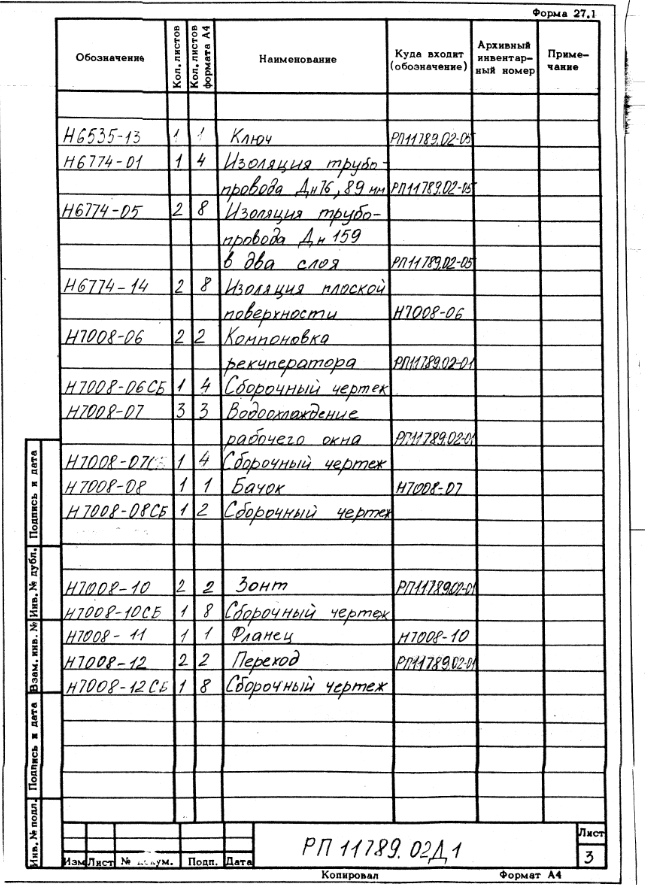 Форма 27.1
Обозначение Кол. листов Кол. листов формата А4 Наименование Куда входит (обозначение) Архивный инвентарный номер Приме-чание
Н6535-13 1 1 Ключ РП11789.02-05
Н6774-01 1 4 Изоляция трубо-
провода Дн76, 89 мм РП11789.02-05
Н6774-05 2 8 Изоляция трубо-
провода Дн 159
в два слоя РП11789.02-05
Н6774-14 2 8 Изоляция плоской
поверхности Н7008-06
Н7008-06 2 2 Компоновка
рекуператора РП11789.02-01
Н7008-06СБ 1 4 Сборочный чертеж
Н7008-07 3 3 Водоохлаждение
рабочего окна РП11789.02-01
Н7008-07СБ 1 4 Сборочный чертеж
Н7008-08 1 1 Бачок Н7008-07
Н7008-08СБ 1 2 Сборочный чертеж
Н7008-10 2 2 Зонт РП11789.02-01
Н7008-10СБ 1 8 Сборочный чертеж
Н7008-11 1 1 Фланец Н7008-10
Н7008-12 2 2 Переход РП11789.02-01
Н7008-12СБ 1 8 Сборочный чертеж
Подпись и дата
Инв. № дубл.
Взам. инв. №
Подпись и дата
Инв. № подл.
РП 11789.02Д1
Лист
3
Изм Лист № Подп. Дата
Копировал Формат А4